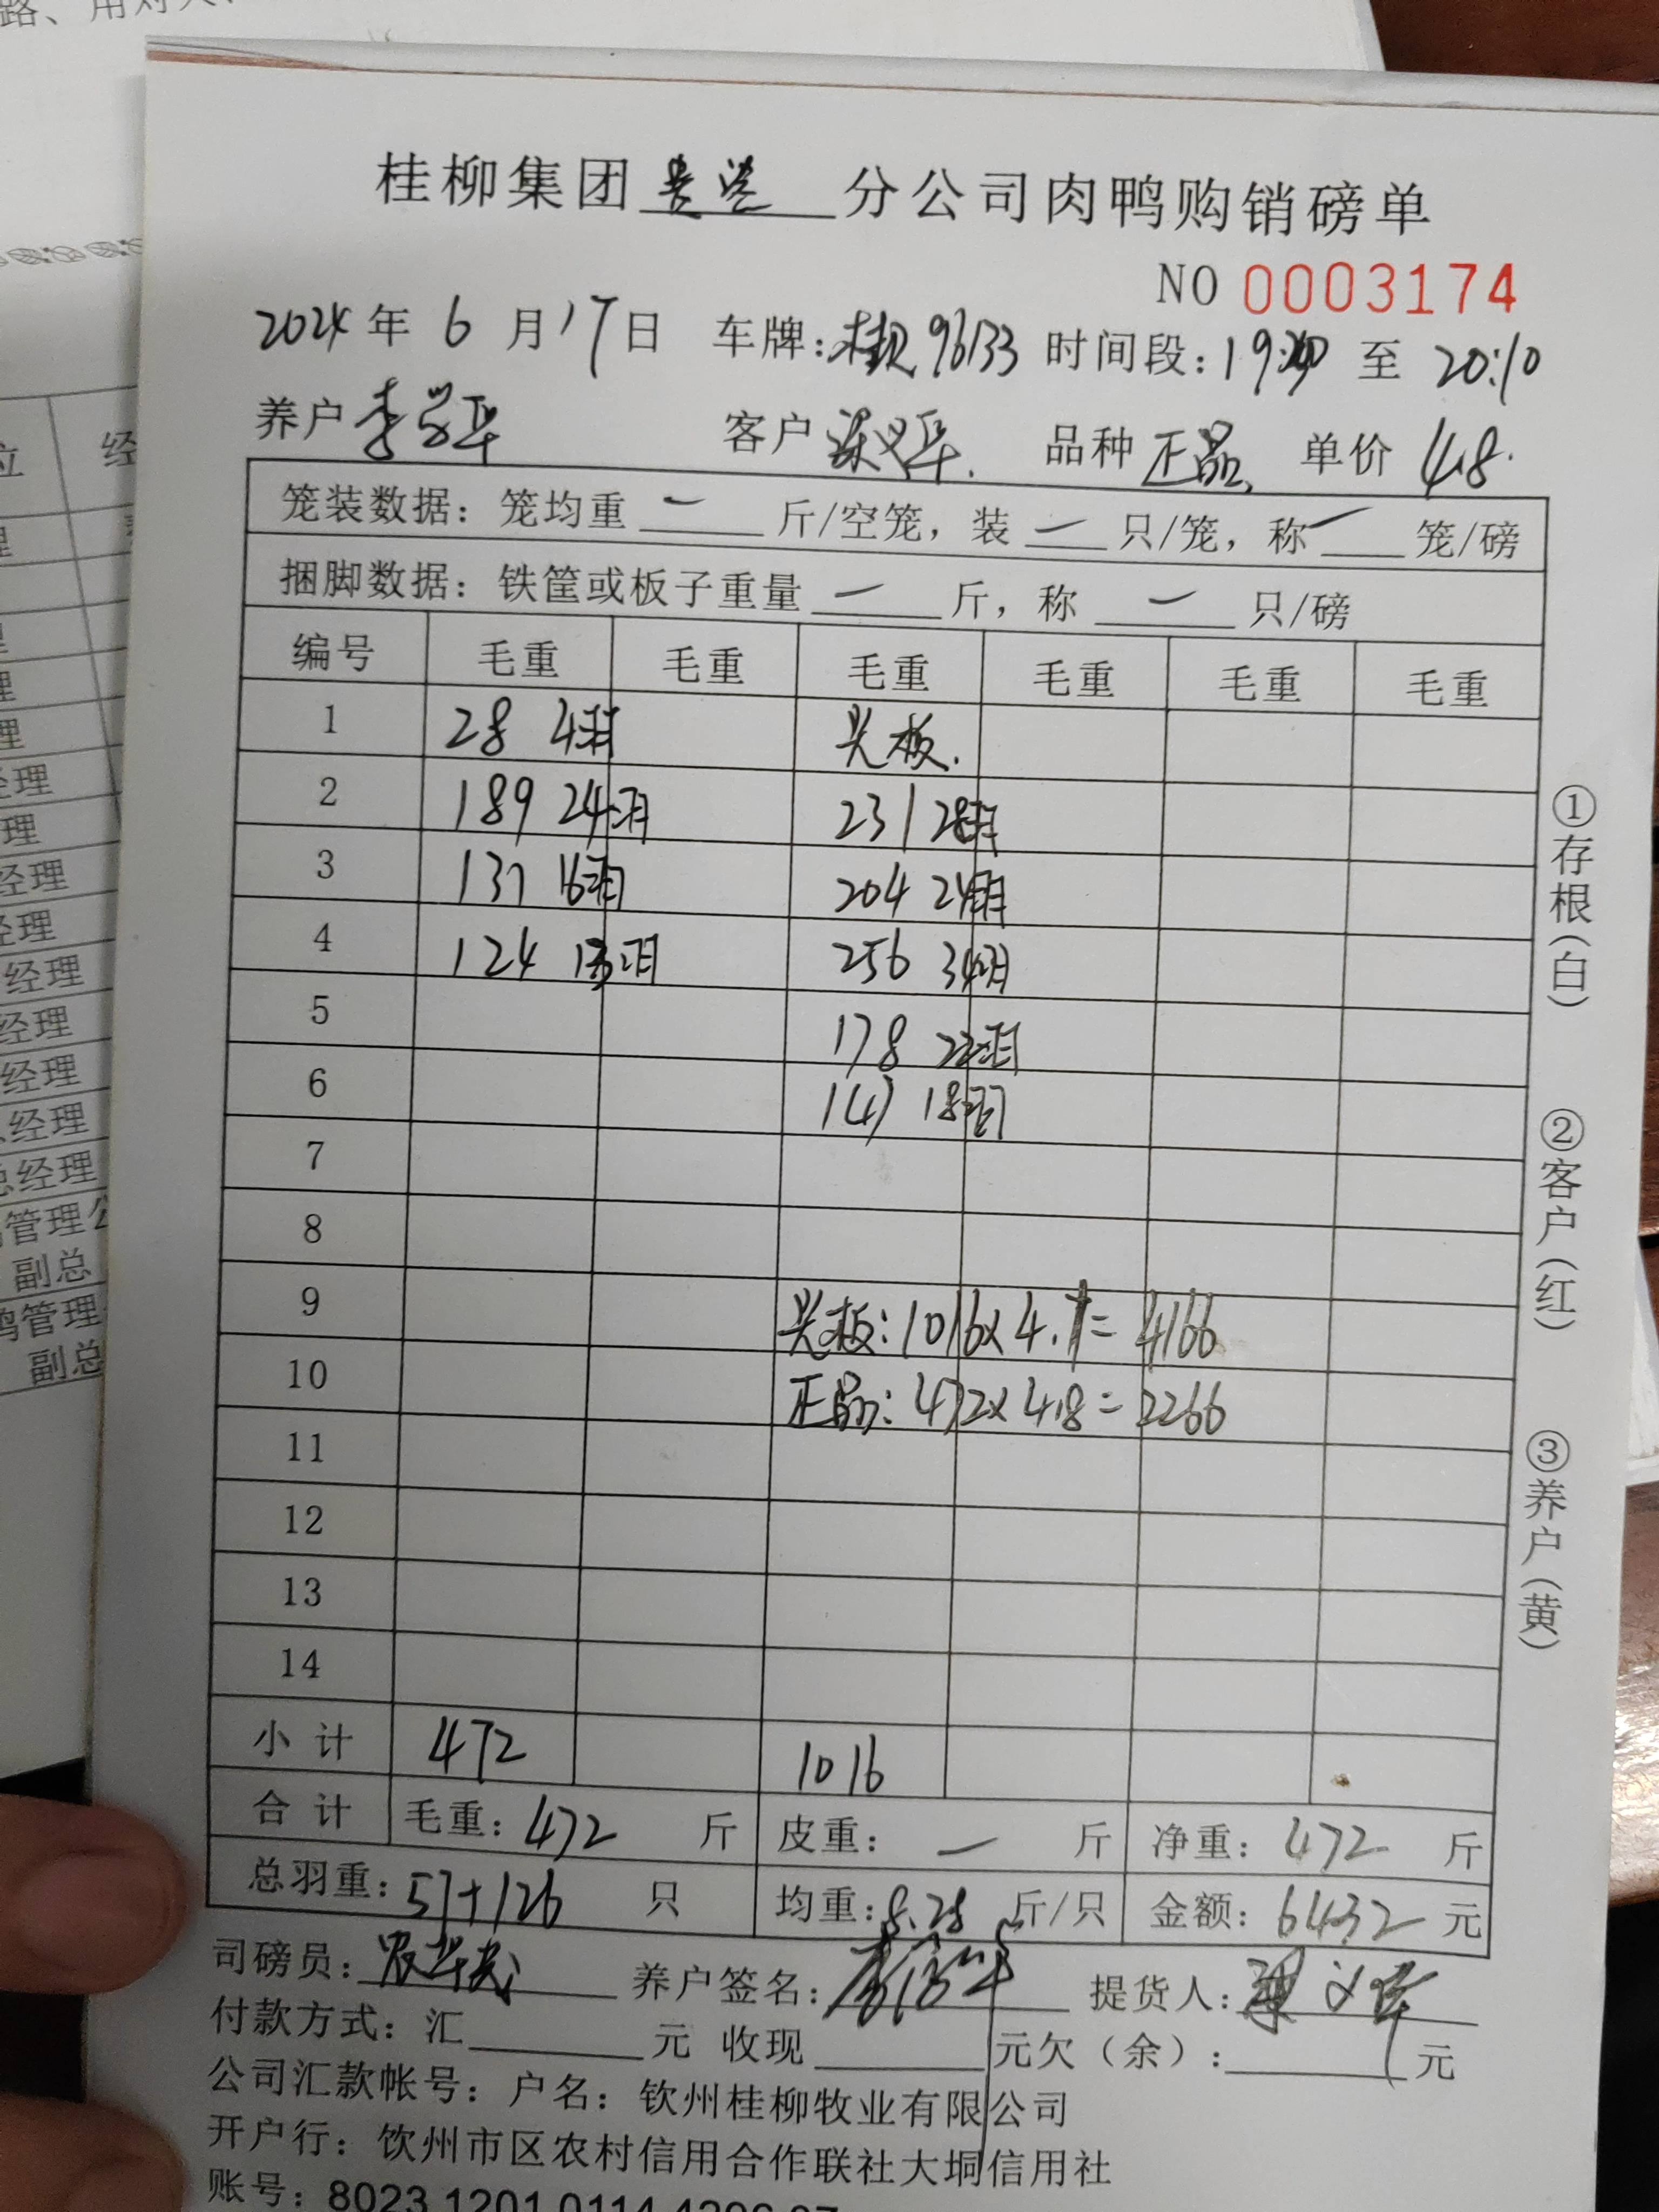 路、用对人
桂柳集团贵港分公司肉鸭购销磅单
NO 0003174
2024年6月17日 车牌:桂R96133 时间段:19:40 至 20:10
养户 李 客户 梁义华 品种 正品 单价 4.8
笼装数据：笼均重 一 斤/空笼，装 一 只/笼，称 一 笼/磅
捆脚数据：铁筐或板子重量 一 斤，称 一 只/磅
编号 毛重 毛重 毛重 毛重 毛重 毛重
1 28 4羽 光板.
2 189 24羽 231 28羽
3 137 16羽 204 24羽
4 124 13羽 256 34羽
5 178 22羽
6 147 18羽
7
8
9 光板:1016x4.1=4166
10 正品:472x4.8=2266
11
12
13
14
小计 472 1016
合计 毛重：472 斤 皮重： 一 斤 净重：472 斤
总羽重：57+126 只 均重:8.28 斤/只 金额：6432 元
司磅员： 养户签名： 提货人：梁义华
付款方式：汇 元 收现 元欠（余）: 元
公司汇款帐号：户名：钦州桂柳牧业有限公司
开户行：饮州市区农村信用合作联社大垌信用社
账号：8023 1201 0114
①存根(白)
②客户(红)
③养户(黄)